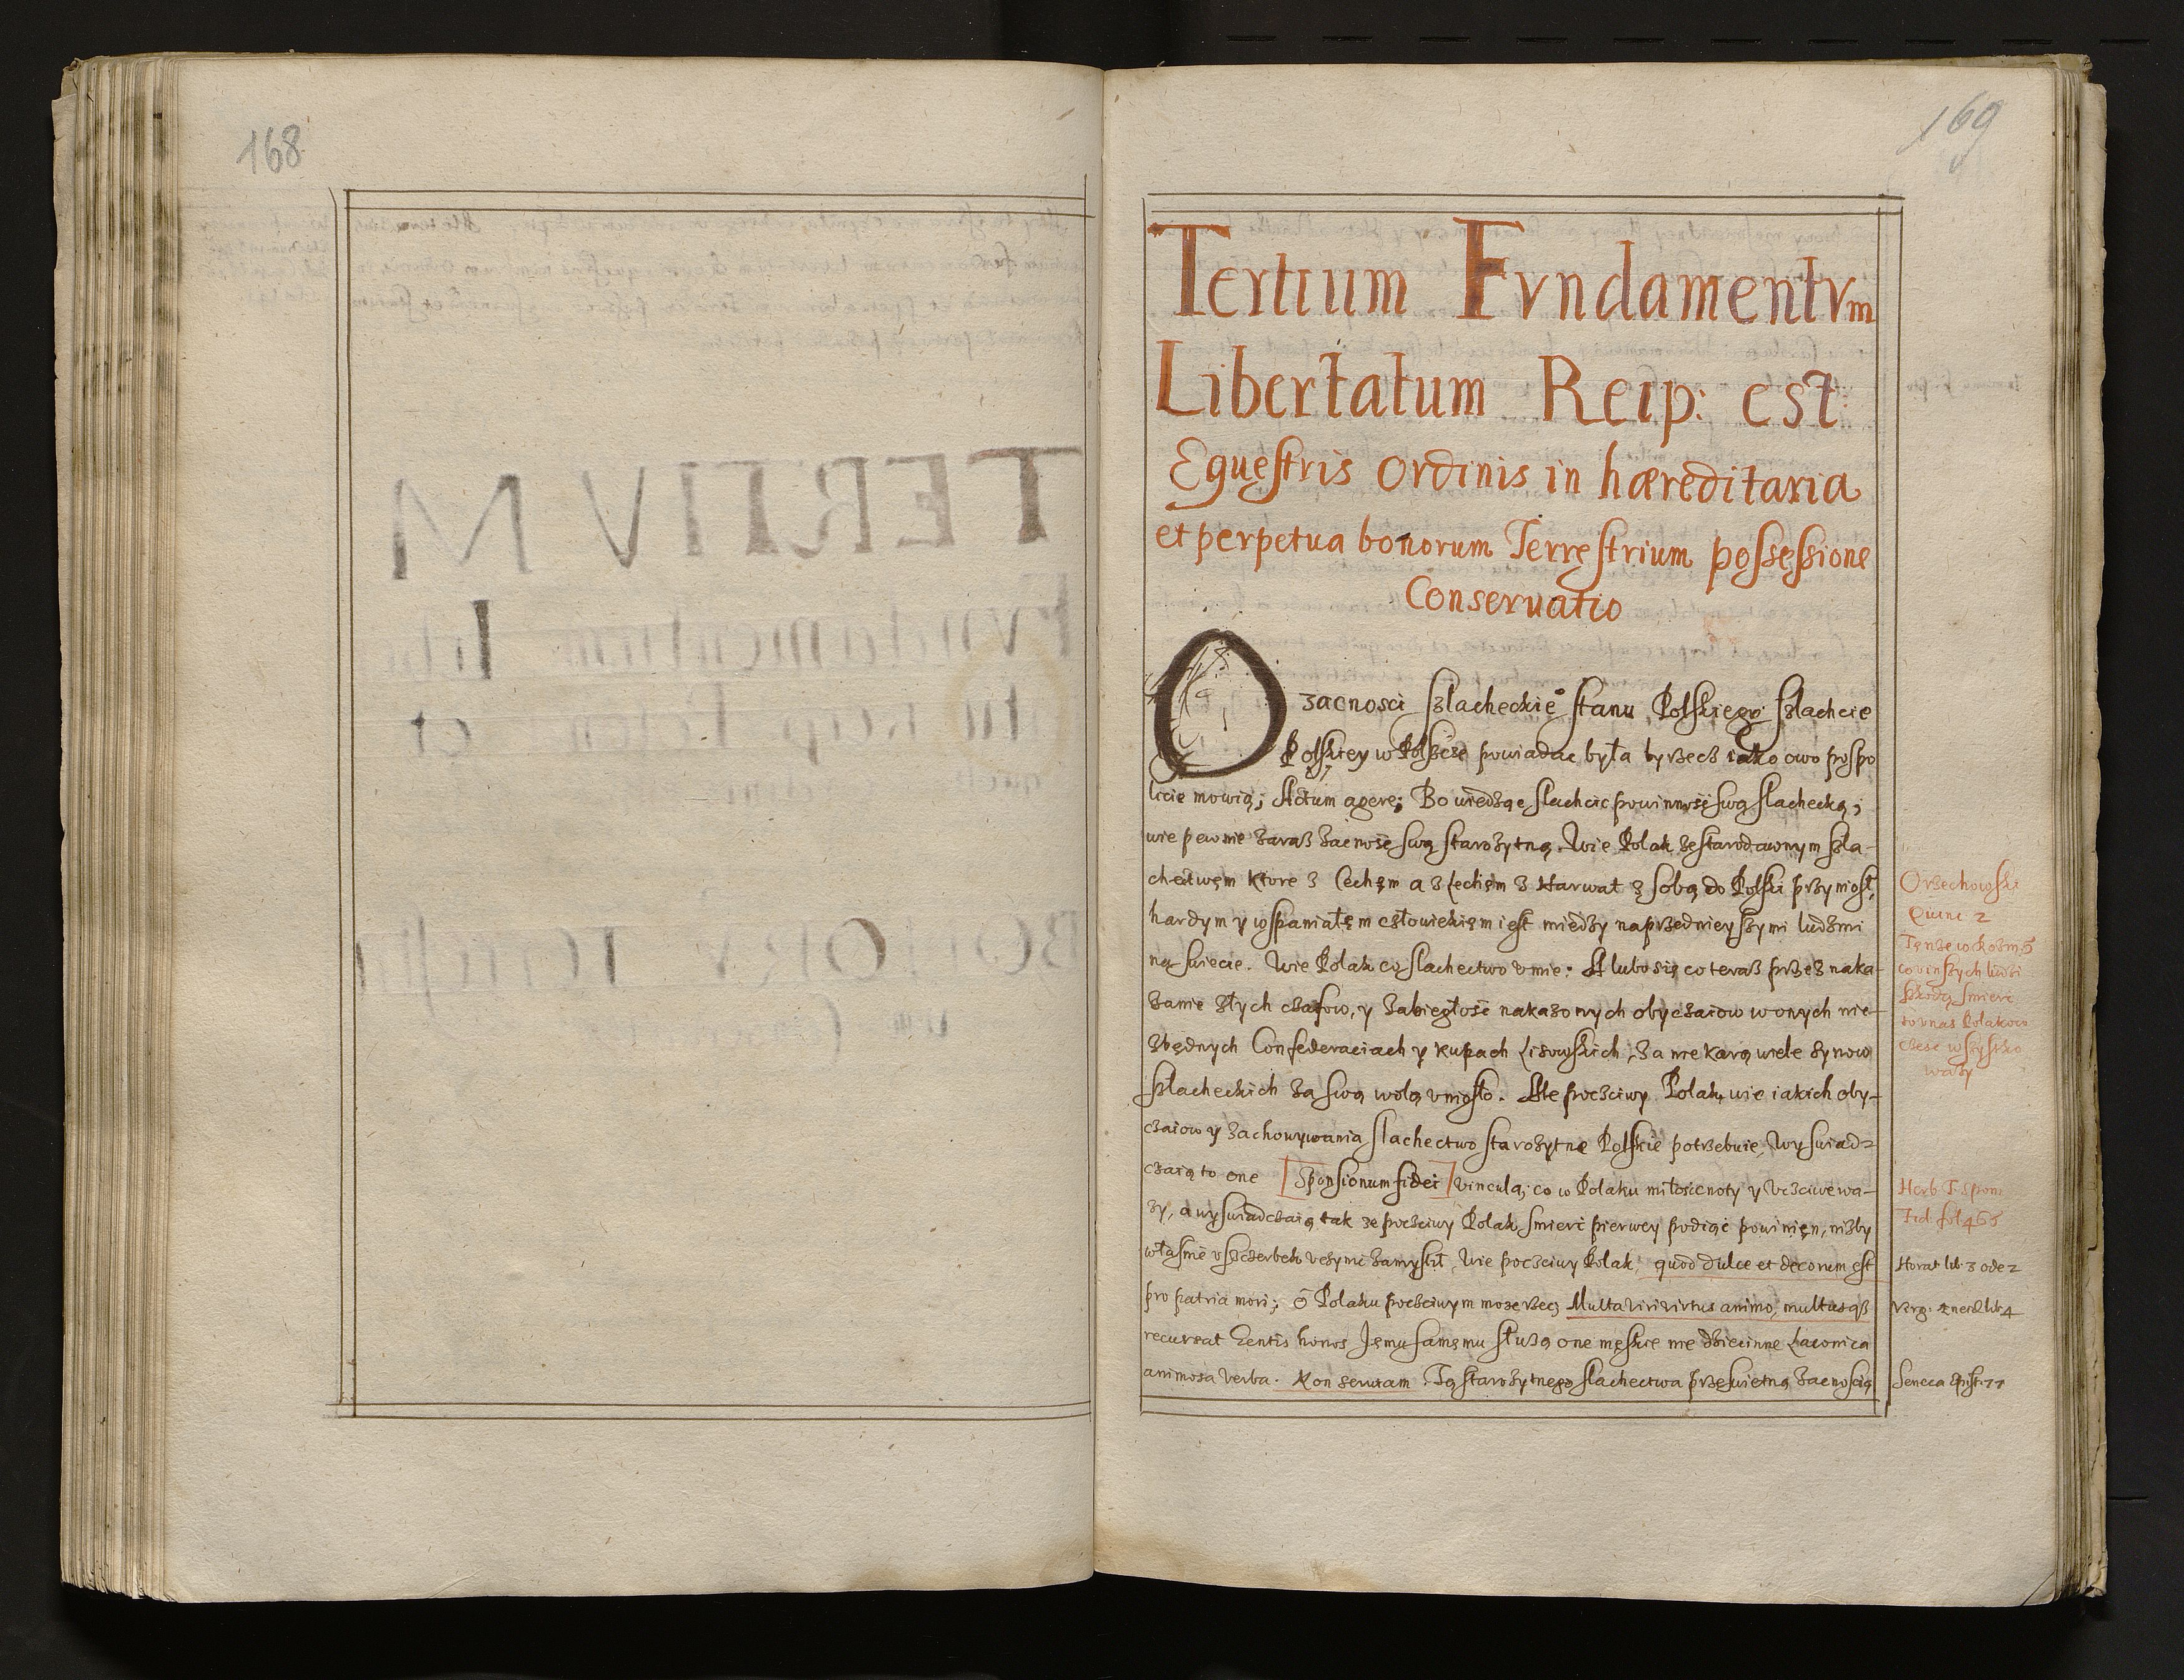 168
169
Tertium Fvndamentvm
Libertatum Reip: est
Equestris Ordinis in hæreditaria
et perpetua bonorum Terrestrium possessione
Conseruatio
O zacnosci szlacheckie stanu Polskiego szlachcie
Polskiey w Polszcze powiadac była by rzecz iako owo pospo
licie mowią; Actum agere; Bo wiedząc slachcic powinnosc swą slachecką;
wie pewnie zaraz zacnosc swą starozytną. Wie Polak ze starodawnym szla-
chectwem ktore z Lechem a z Czechem z Karwat z sobą do Polski przyniosł,
hardym y wspaniałem człowiekiem iest miedzy naprzednieyszymi ludzmi
na swiecie. Wie Polak co slachectwo umie: A lubo się co teraz przez naka-
zanie złych czasow, y zabiegłosc nakazonych obyczaiow w onych nie-
zbędnych Confederaciach y kupach Lisowskich, za nie karą wiele synow
szlacheckich za swą wolą uniosło. Ale poczciwy Polak wie iakich oby-
czaiow y zachowywania slachectwo starozytne Polskie potrzebuie, Wyswiad-
czaią to one Sponsionum fidei vincula; co w Polaku miłosc cnoty y uczciwe wa-
zy, a wyswiadczaią tak ze poczciwy Polak smierc pierwey podiąc powinien, nizby
Wie poczciwy Polak quod dulce et decorum est
pro patria mori; o Polaku poczciwym moze rzec Multa viri virtus animo, multusqz
recursat Gentis honos Jemu samemu służą one męskie nie dziecinne Laconica
animosa verba. Non seruiam. Tą starozytnego slachectwa prześwietną zacnoscią
Orzechowski
Quinc 2
co v inszych ludzi
szkodą smierc
to v nas Polakow
czesc wszystko
wazy
Herb. F. Spon
Fid. fol 465
Horat lib 3 ode 2
Virg: Æneid lib 4
Seneca Epist. 77